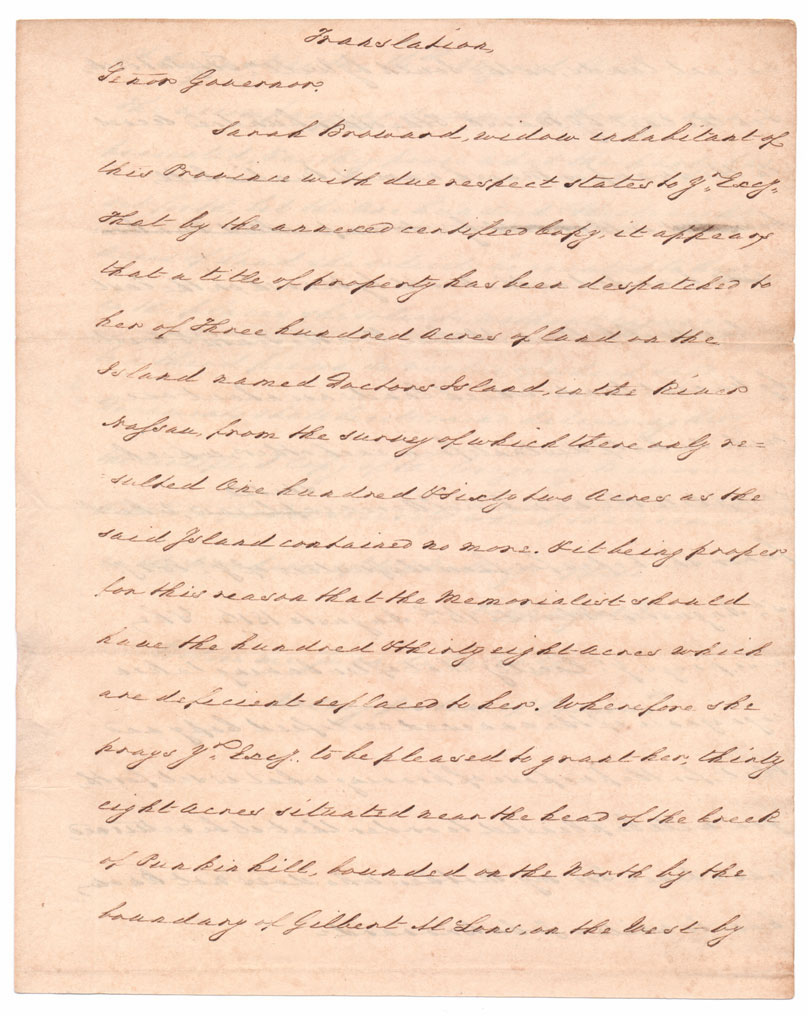 Translation,
Señor Governor.
Sarah Broward, widow inhabitant of
this Province with due respect states to Yr. Excy.
That by the annexed certified Copy, it appears
that a title of property has been despatched to
her of Three hundred Acres of land on the
Island named Doctors Island, in the River
Nassau, from the survey of which there only re=
sulted One hundred & sixty two Acres as the
said Island contained no more. & it being proper
for this reason that the Memorialist should
have the hundred & thirty eight acres which
are deficient replaced to her. Wherefore she
prays Yr. Excy. to be pleased to grant her, thirty
eight Acres situated near the head of the Creek
of Punkin hill, bounded on the North by the
boundary of Gilbert, on the West by